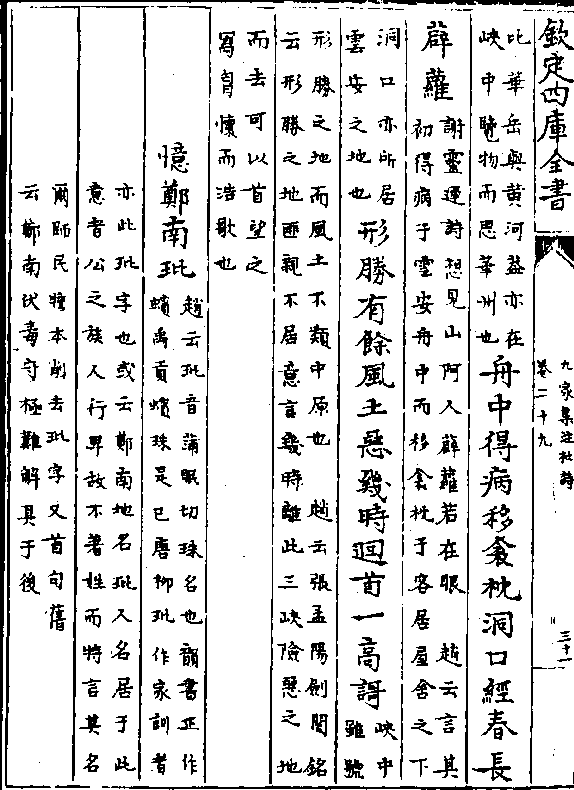 欽定四庫全書
九家集注杜詩
卷二十九
三十一
比華岳與黃河益亦在
峽中覽物而思華州也
舟中得病移衾枕洞口經春長
薜蘿
謝靈運詩想見山阿人薜蘿若在眼　趙云言其
初得病于雲安舟中而移衾枕于客居屋舍之下
洞口亦所居
雲安之地也
形勝有餘風土惡幾時迴首一高謌
峽中
雖號
形勝之地而風土不類中原也　趙云張孟陽劒閣銘
云形勝之地匪親不居意言幾時離此三峽險惡之地
而去可以首望之
寫育懷而浩歌也
憶鄭南玭
趙云玭音蒲眠切珠名也韻書正作
蠙禹貢蠙珠是已唐柳玭作家訓者
亦此玭字也或云鄭南地名玭人名居于此
意者公之族人行卑故不著姓而特言其名
爾師民瞻本削去玭字又首句舊
云鄭南伏毒守極難解具于後